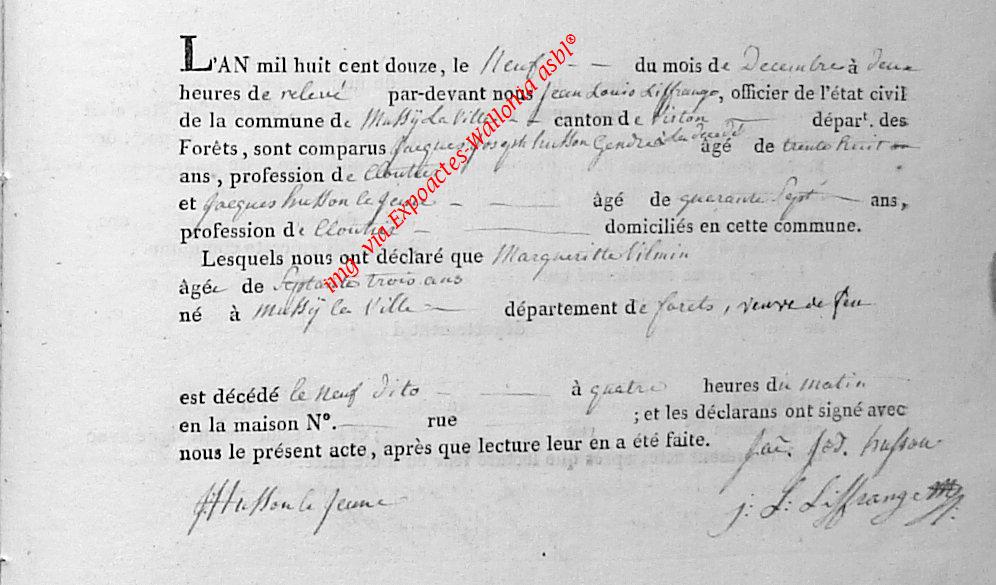 L'AN mil huit cent douze, le Neuf du mois de Decembre à deux
heures de relevé par-devant nous Jean Louis Liffrange, officier de l'état civil
de la commune de Mussy La Ville canton de Virton dépar<sup>t</sup>. des
Forêts, sont comparus Jacques Joseph husson Gendre à la decedé âgé de trente huit
ans, profession de Cloutier
et Jacques husson le jeune âgé de quarante Sept ans,
profession de Cloutier domiciliés en cette commune.
Lesquels nous ont déclaré que Margueritte Vilmin
âgée de Septante trois ans
né à Mussÿ la Ville département de forets, veuve de feu
est décédé le neuf dito à quatre heures du matin
en la maison N°. rue ; et les déclarans ont signé avec
nous le présent acte, après que lecture leur en a été faite.
Jac. Jos. husson
J Husson le jeune
j: L: Liffrange
img via Expoactes-Wallonia asbl®